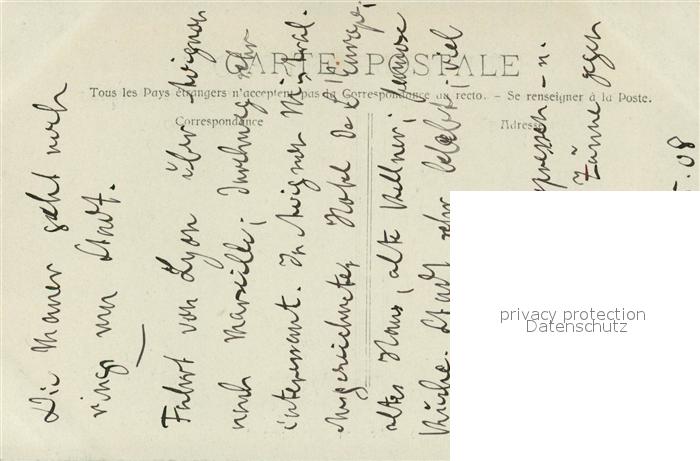 CARTE POSTALE
Tous les Pays étrangers n'acceptent pas la Correspondance au recto. - Se renseigner à la Poste.
Correspondance
Adresse
Die Mauer geht noch
rings um Stadt.
Fahrt von Lyon über Avignon
nach Marseille; durchweg sehr
interessant. In Avignon Mistral.
Ausgezeichnetes Hotel de l'Europe,
altes Haus, alte Kellner,
Küche. Stadt sehr belebt, viel
Zäune gegen
08
privacy protection
Datenschutz